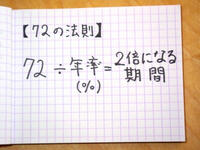 【72の法則】
72 ÷ 年率 = 2倍になる
(%) 期間